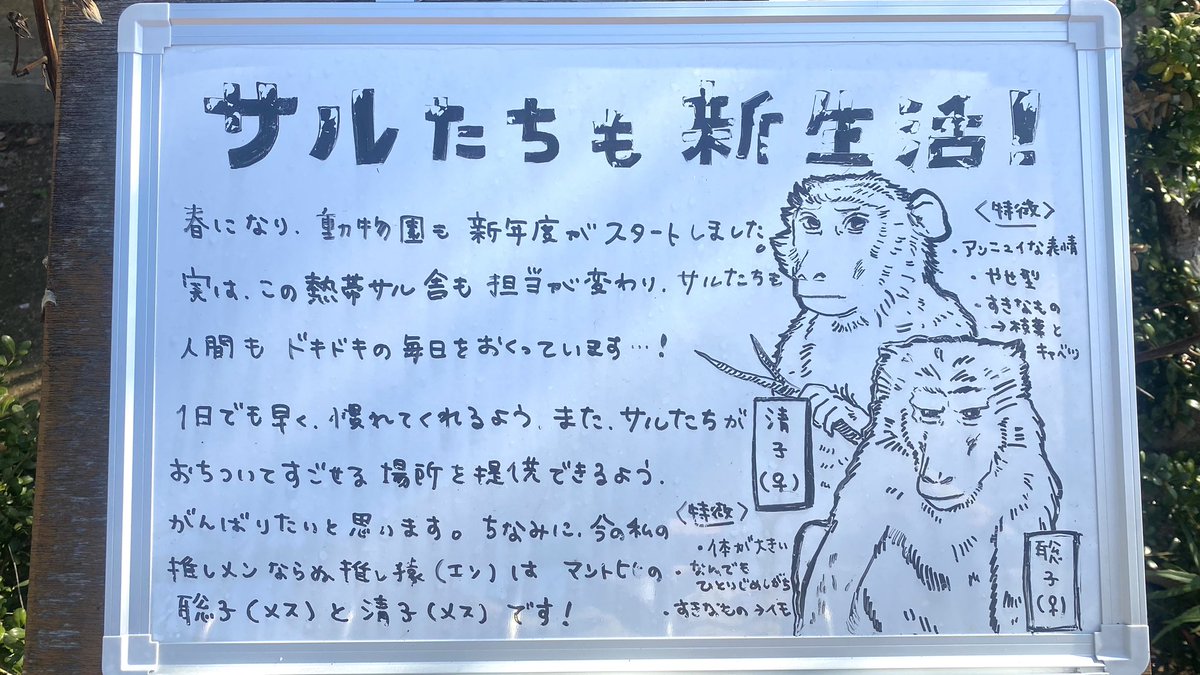 サルたちも新生活!
春になり、動物園も新年度がスタートしました。
実は、この熱帯サル舎も担当が変わり、サルたちも
人間もドキドキの毎日をおくっています…!
1日でも早く、慣れてくれるよう、また、サルたちが
おちついてすごせる場所を提供できるよう、
がんばりたいと思います。ちなみに、今の私の
推しメンならぬ推し猿(エン)は マントヒヒの
聡子(メス)と清子(メス)です!
<特徴>
・アンニュイな表情
・やせ型
・すきなもの
→枝葉と
キャベツ
清子(♀)
<特徴>
・体が大きい
・なんでも
ひとりじめしがち
・すきなもの→イモ
聡子(♀)